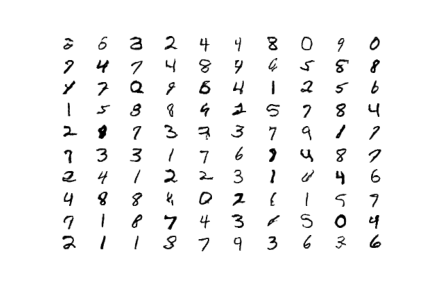 2 6 3 2 4 4 8 0 9 0
7 4 7 4 8 4 6 5 8 8
4 7 0 9 5 4 1 2 5 6
1 5 8 8 9 2 5 7 8 4
2 8 7 3 7 3 7 9 1 7
7 3 3 1 7 6 9 4 8 7
2 4 1 2 2 3 1 4 6
4 8 8 4 0 2 1 5 7
7 1 8 7 4 3 5 0 4
2 1 1 8 7 9 3 6 3 6